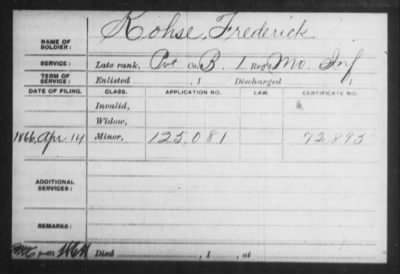 NAME OF SOLDIER: Kohse, Frederick
SERVICE: Late rank, Pvt Co. B, 1 Reg't Mo. Inf
TERM OF SERVICE: Enlisted , 1 Discharged , 1
DATE OF FILING. CLASS. APPLICATION NO. LAW. CERTIFICATE NO.
Invalid,
Widow,
1866, Apr 14 Minor, 125,081 72,895
ADDITIONAL SERVICES:
REMARKS:
Died , 1 , at